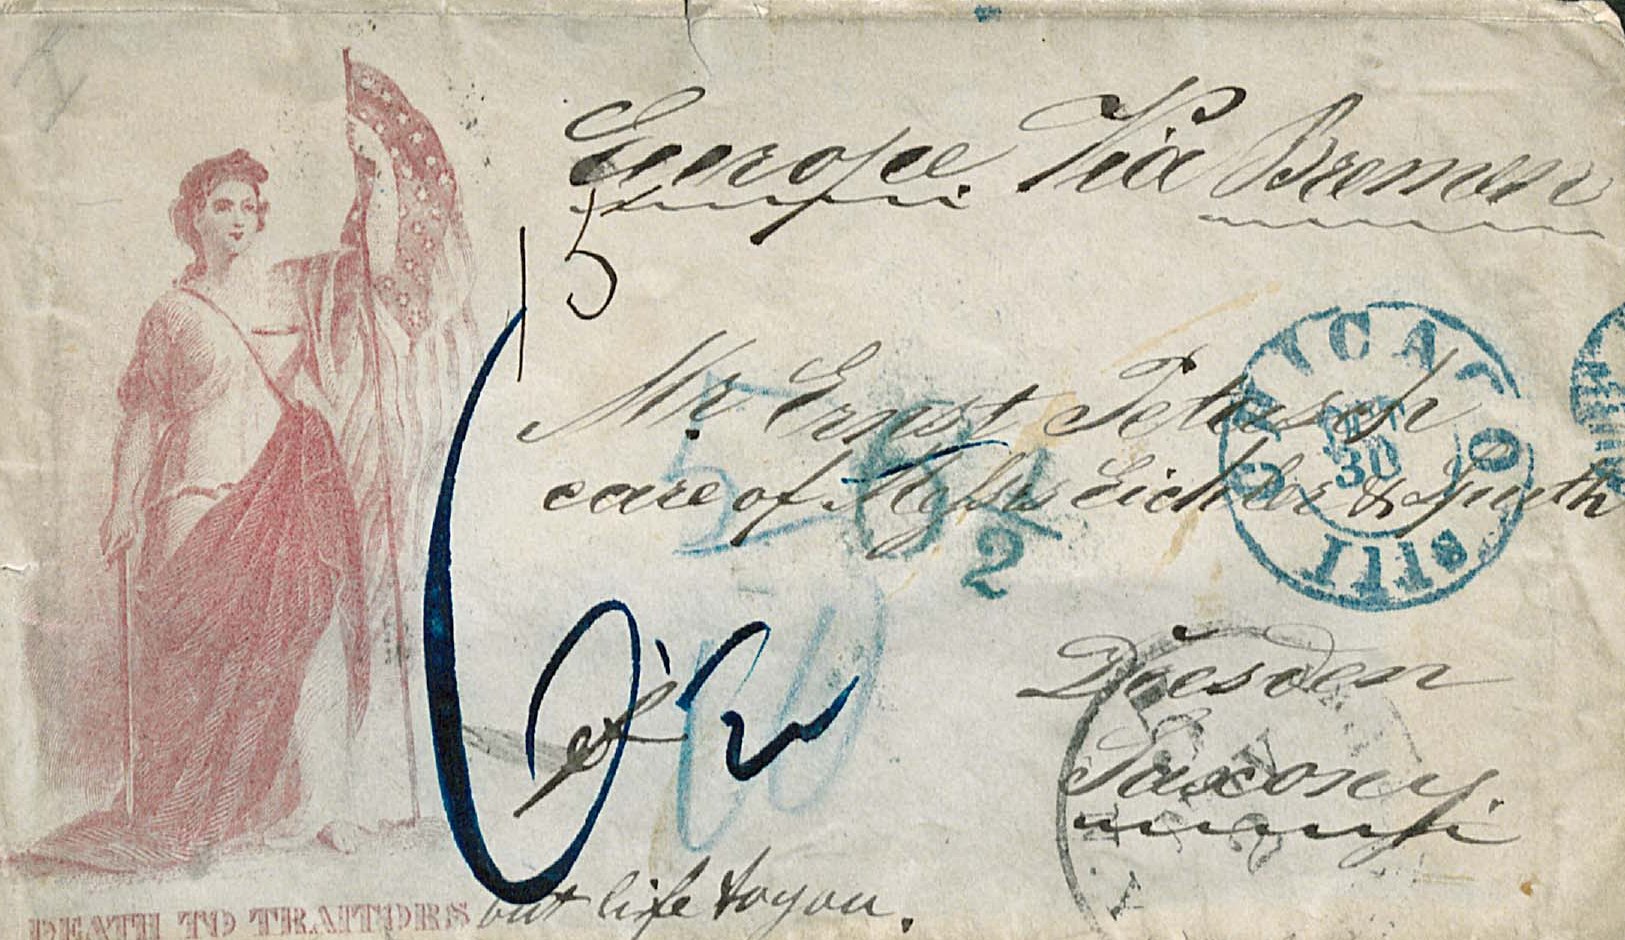 Europe. Via Bremen
15
Mr Ernst
care of Messrs Eichler &
6 1/2
CHICAGO
30
Ills
Dresden
Saxony.
DEATH TO TRAITORS but life to you.